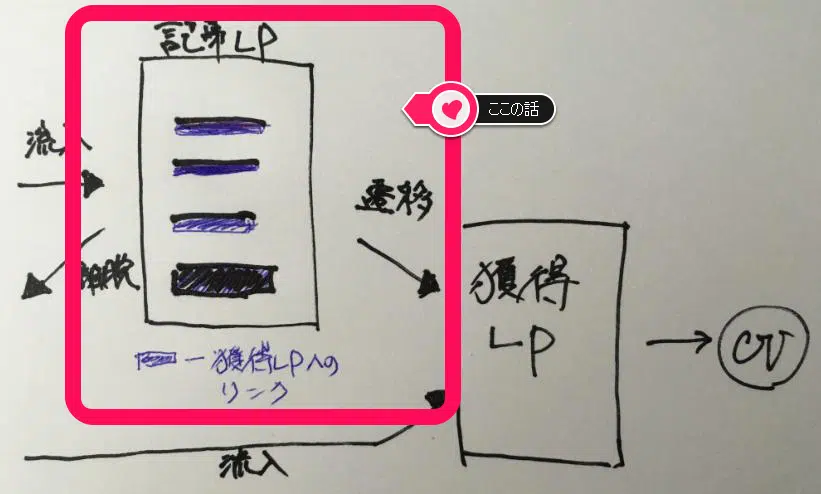 記事LP
ここの話
流入
遷移
離脱
獲得
LP
CV
ー獲得LPへの
リンク
流入